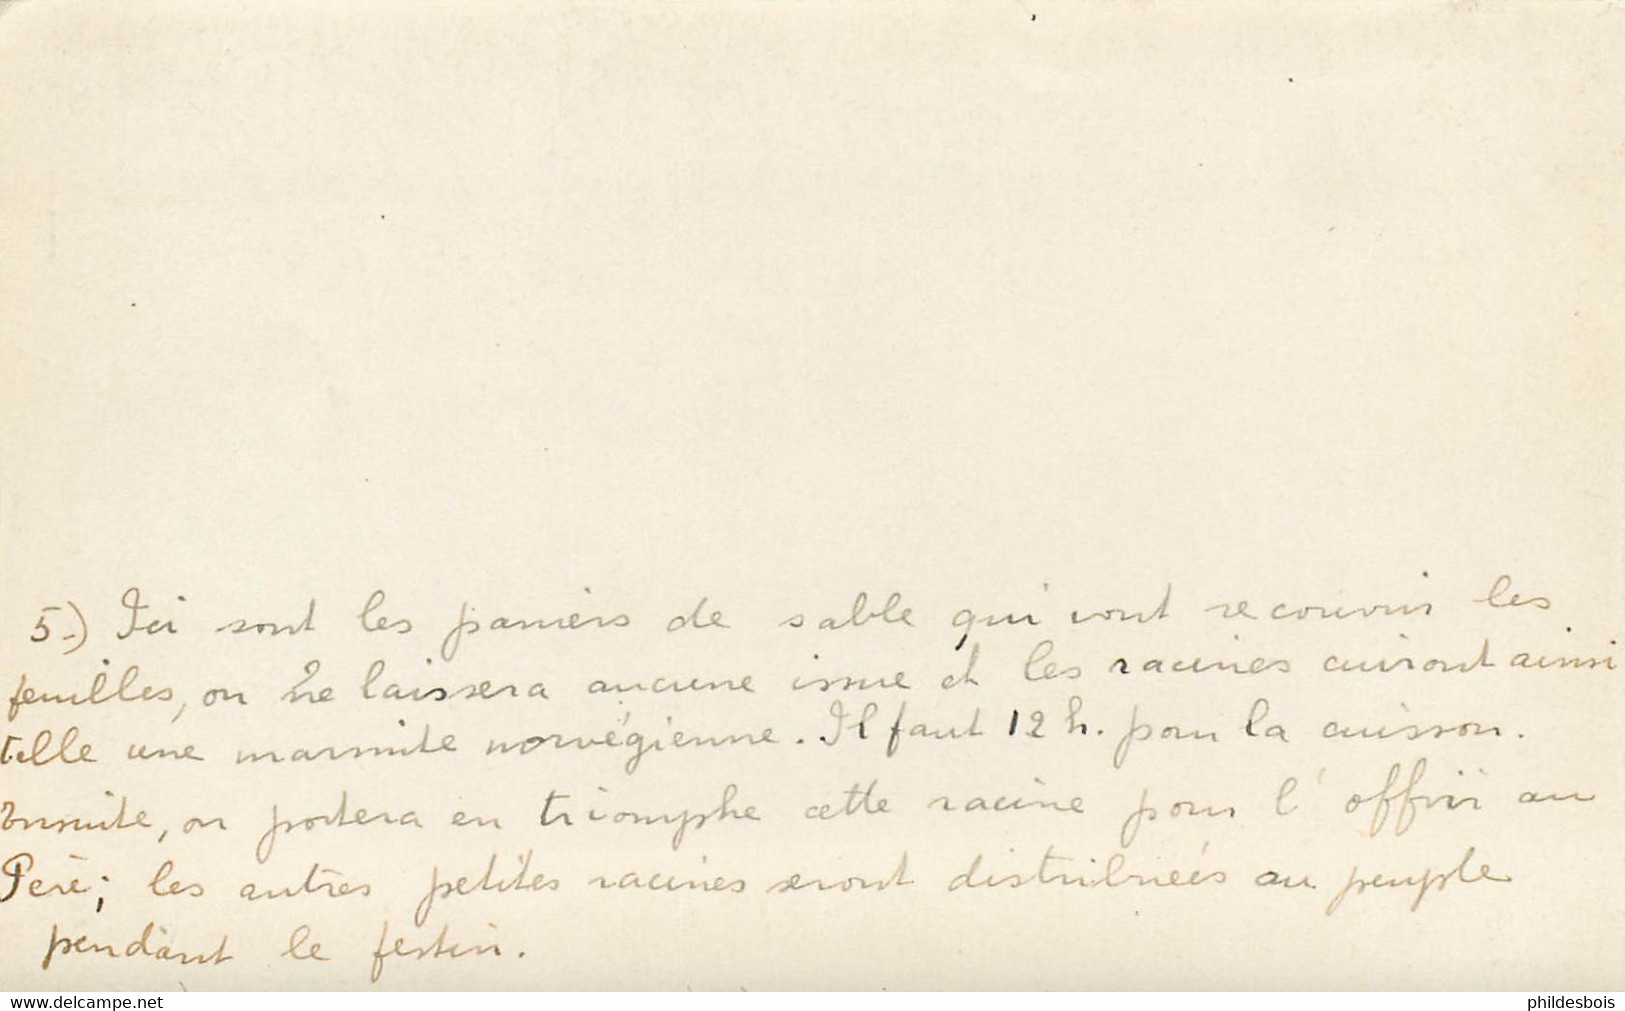 5.) Ici sont les paniers de sable qui vont recouvrir les
feuilles, on ne laissera aucune issue et les racines cuiront ainsi
telle une marmite norvégienne. Il faut 12 h. pour la cuisson.
Ensuite, on portera en triomphe cette racine pour l'offrir au
Père; les autres petites racines seront distribuées au peuple
pendant le festin.
www.delcampe.net
phildesbois